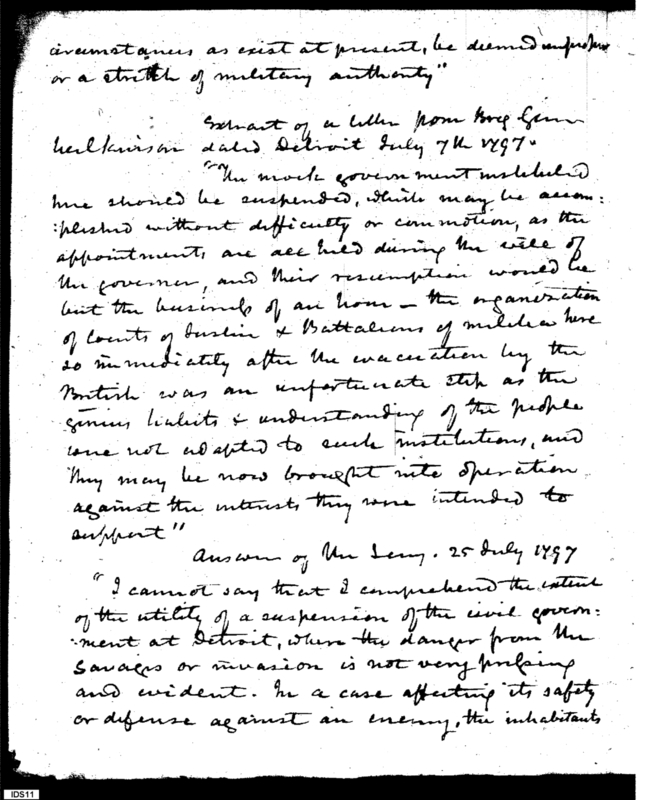 circumstances as exist at present, be deemed improper
or a stretch of military authority"
Extract of a letter from Brig Genr
Wilkinson dated Detroit July 7th 1797.
"The mock government instituted
here should be suspended, which may be accom:
:plished without difficulty or commotion, as the
appointments are all held during the will of
the governor, and their resumption would be
but the business of an hour — the organization
of Courts of Justice & Battalions of militia here
so immediately after the evacuation by the
British was an unfortunate step as the
genius habits & understanding of the people
were not adapted to such institutions, and
they may be now brought into operation
against the interests they were intended to
support"
Answer of the Secy. 25 July 1797
"I cannot say that I comprehend the extent
of the utility of a suspension of the civil govern:
:ment at Detroit, where the danger from the
Savages or invasion is not very pressing
and evident. In a case affecting its safety
or defense against an enemy, the inhabitants
IDS11